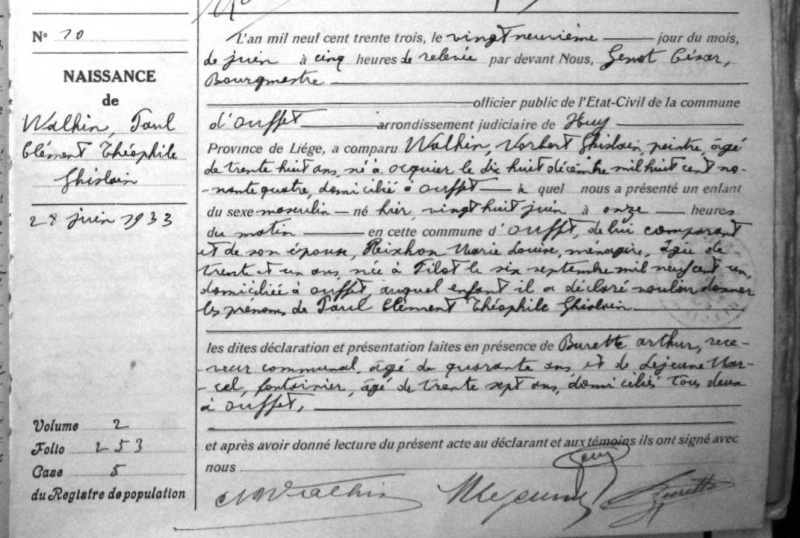 N° 10
NAISSANCE
de
Walhin, Paul
Clément Théophile
Ghislain
28 juin 1933
Volume 2
Folio 253
Case 5
du Registre de population
L'an mil neuf cent trente trois, le vingt neuvième jour du mois,
de juin à cinq heures de relevée par devant Nous, Genot César,
Bourgmestre
officier public de l'Etat-Civil de la commune
d'Ouffet arrondissement judiciaire de Huy
Province de Liége, a comparu Walhin, Norbert Ghislain, peintre, âgé
de trente huit ans, né à ocquier le dix huit décembre mil huit cent no-
-nante quatre, domicilié à Ouffet - le quel nous a présenté un enfant
du sexe masculin - né hier, vingt huit juin à onze heures
du matin en cette commune d'Ouffet, de lui comparant
et de son épouse, Rixhon Marie Louise, ménagère, âgée de
trente et un ans, née à Tilot le six septembre mil neuf cent un,
domiciliée à Ouffet, auquel enfant il a déclaré vouloir donner
les prénoms de Paul Clément Théophile Ghislain
les dites déclaration et présentation faites en présence de Burette Arthur, rece-
-veur communal, âgé de quarante ans et de Lejeune Mar-
-cel, fontainier, âgé de trente sept ans, domiciliés tous deux
à Ouffet,
et après avoir donné lecture du présent acte au déclarant et aux témoins ils ont signé avec
nous
N Walhin MLejeune Burette